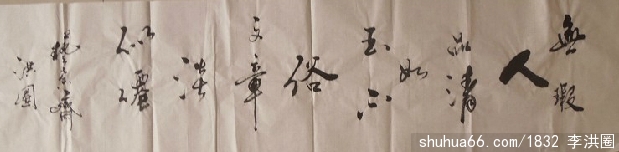 無瑕
人
品清
如
玉不
俗
文章
淡
似
齋
洪圈
shuhua66.com/1832 李洪圈